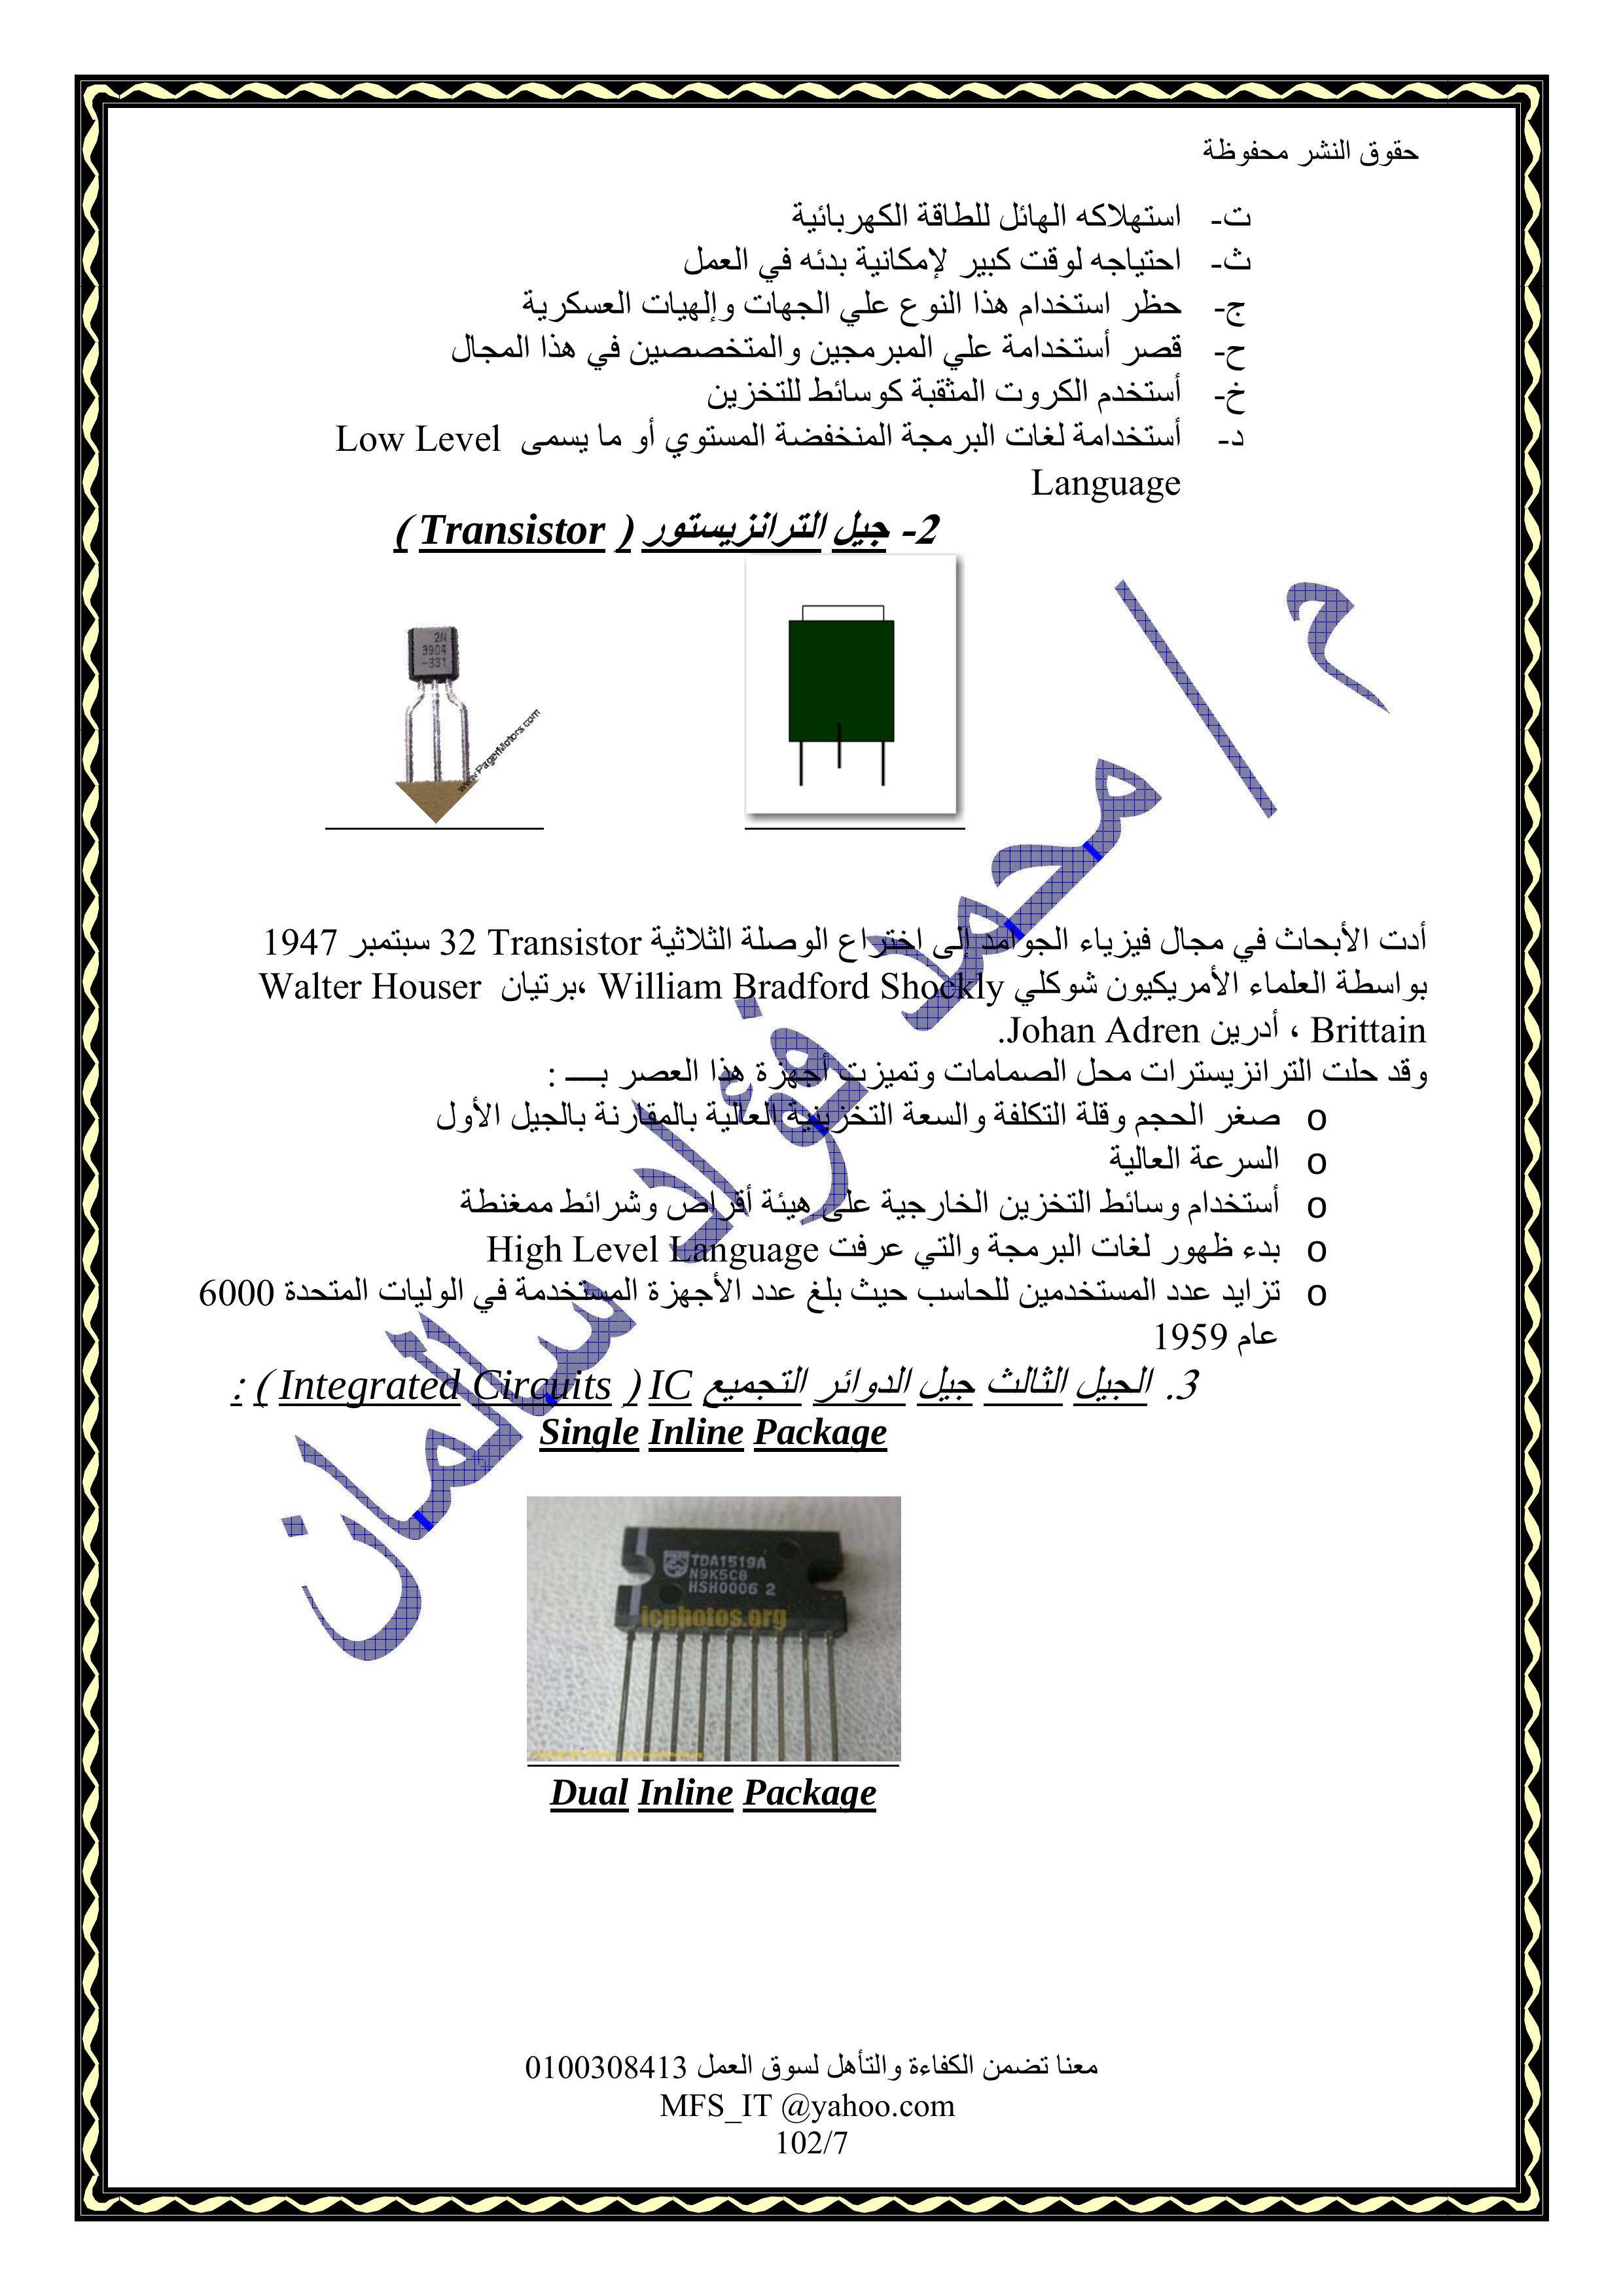 حقوق النشر محفوظة
ت- استهلاكه الهائل للطاقة الكهربائية
ث- احتياجه لوقت كبير لإمكانية بدئه في العمل
ج- حظر استخدام هذا النوع علي الجهات وإلهيات العسكرية
ح- قصر أستخدامة علي المبرمجين والمتخصصين في هذا المجال
خ- أستخدم الكروت المثقبة كوسائط للتخزين
د- أستخدامة لغات البرمجة المنخفضة المستوي أو ما يسمى Low Level
Language
2- جيل الترانزيستور ( Transistor )
2N
3904
-331
www.PagerMotors.com
م / محمد فؤاد سالمان
أدت الأبحاث في مجال فيزياء الجوامد إلى اختراع الوصلة الثلاثية Transistor 32 سبتمبر 1947
بواسطة العلماء الأمريكيون شوكلي William Bradford Shockly ،برتيان Walter Houser
Brittain ، أدرين Johan Adren.
وقد حلت الترانزيسترات محل الصمامات وتميزت أجهزة هذا العصر بــــ :
o صغر الحجم وقلة التكلفة والسعة التخزينية العالية بالمقارنة بالجيل الأول
o السرعة العالية
o أستخدام وسائط التخزين الخارجية على هيئة أقراص وشرائط ممغنطة
o بدء ظهور لغات البرمجة والتي عرفت High Level Language
o تزايد عدد المستخدمين للحاسب حيث بلغ عدد الأجهزة المستخدمة في الوليات المتحدة 6000
عام 1959
3. الجيل الثالث جيل الدوائر التجميع IC ( Integrated Circuits ) :
Single Inline Package
TDA1519A
N9K5C8
HSH0006 2
icphotos.org
Dual Inline Package
معنا تضمن الكفاءة والتأهل لسوق العمل 0100308413
MFS_IT @yahoo.com
102/7